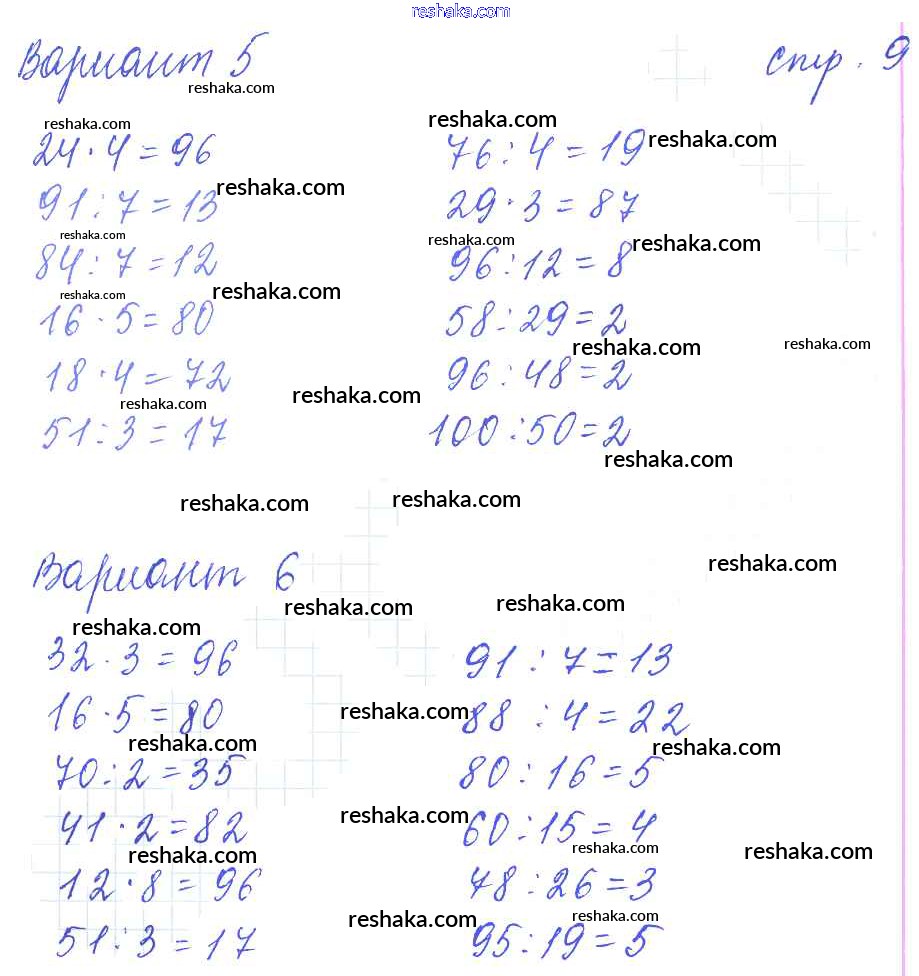 reshaka.com
Вариант 5 стр. 9
reshaka.com
reshaka.com reshaka.com
24 · 4 = 96 76 : 4 = 19 reshaka.com
91 : 7 = 13 reshaka.com 29 · 3 = 87
reshaka.com reshaka.com reshaka.com
84 : 7 = 12 96 : 12 = 8
reshaka.com reshaka.com
16 · 5 = 80 58 : 29 = 2
reshaka.com reshaka.com
18 · 4 = 72 96 : 48 = 2
reshaka.com reshaka.com
51 : 3 = 17 100 : 50 = 2
reshaka.com
reshaka.com reshaka.com
Вариант 6 reshaka.com
reshaka.com reshaka.com
reshaka.com
32 · 3 = 96 91 : 7 = 13
16 · 5 = 80 reshaka.com 88 : 4 = 22
reshaka.com reshaka.com
70 : 2 = 35 80 : 16 = 5
reshaka.com
41 · 2 = 82 60 : 15 = 4
reshaka.com reshaka.com reshaka.com
12 · 8 = 96 78 : 26 = 3
reshaka.com reshaka.com
51 : 3 = 17 95 : 19 = 5